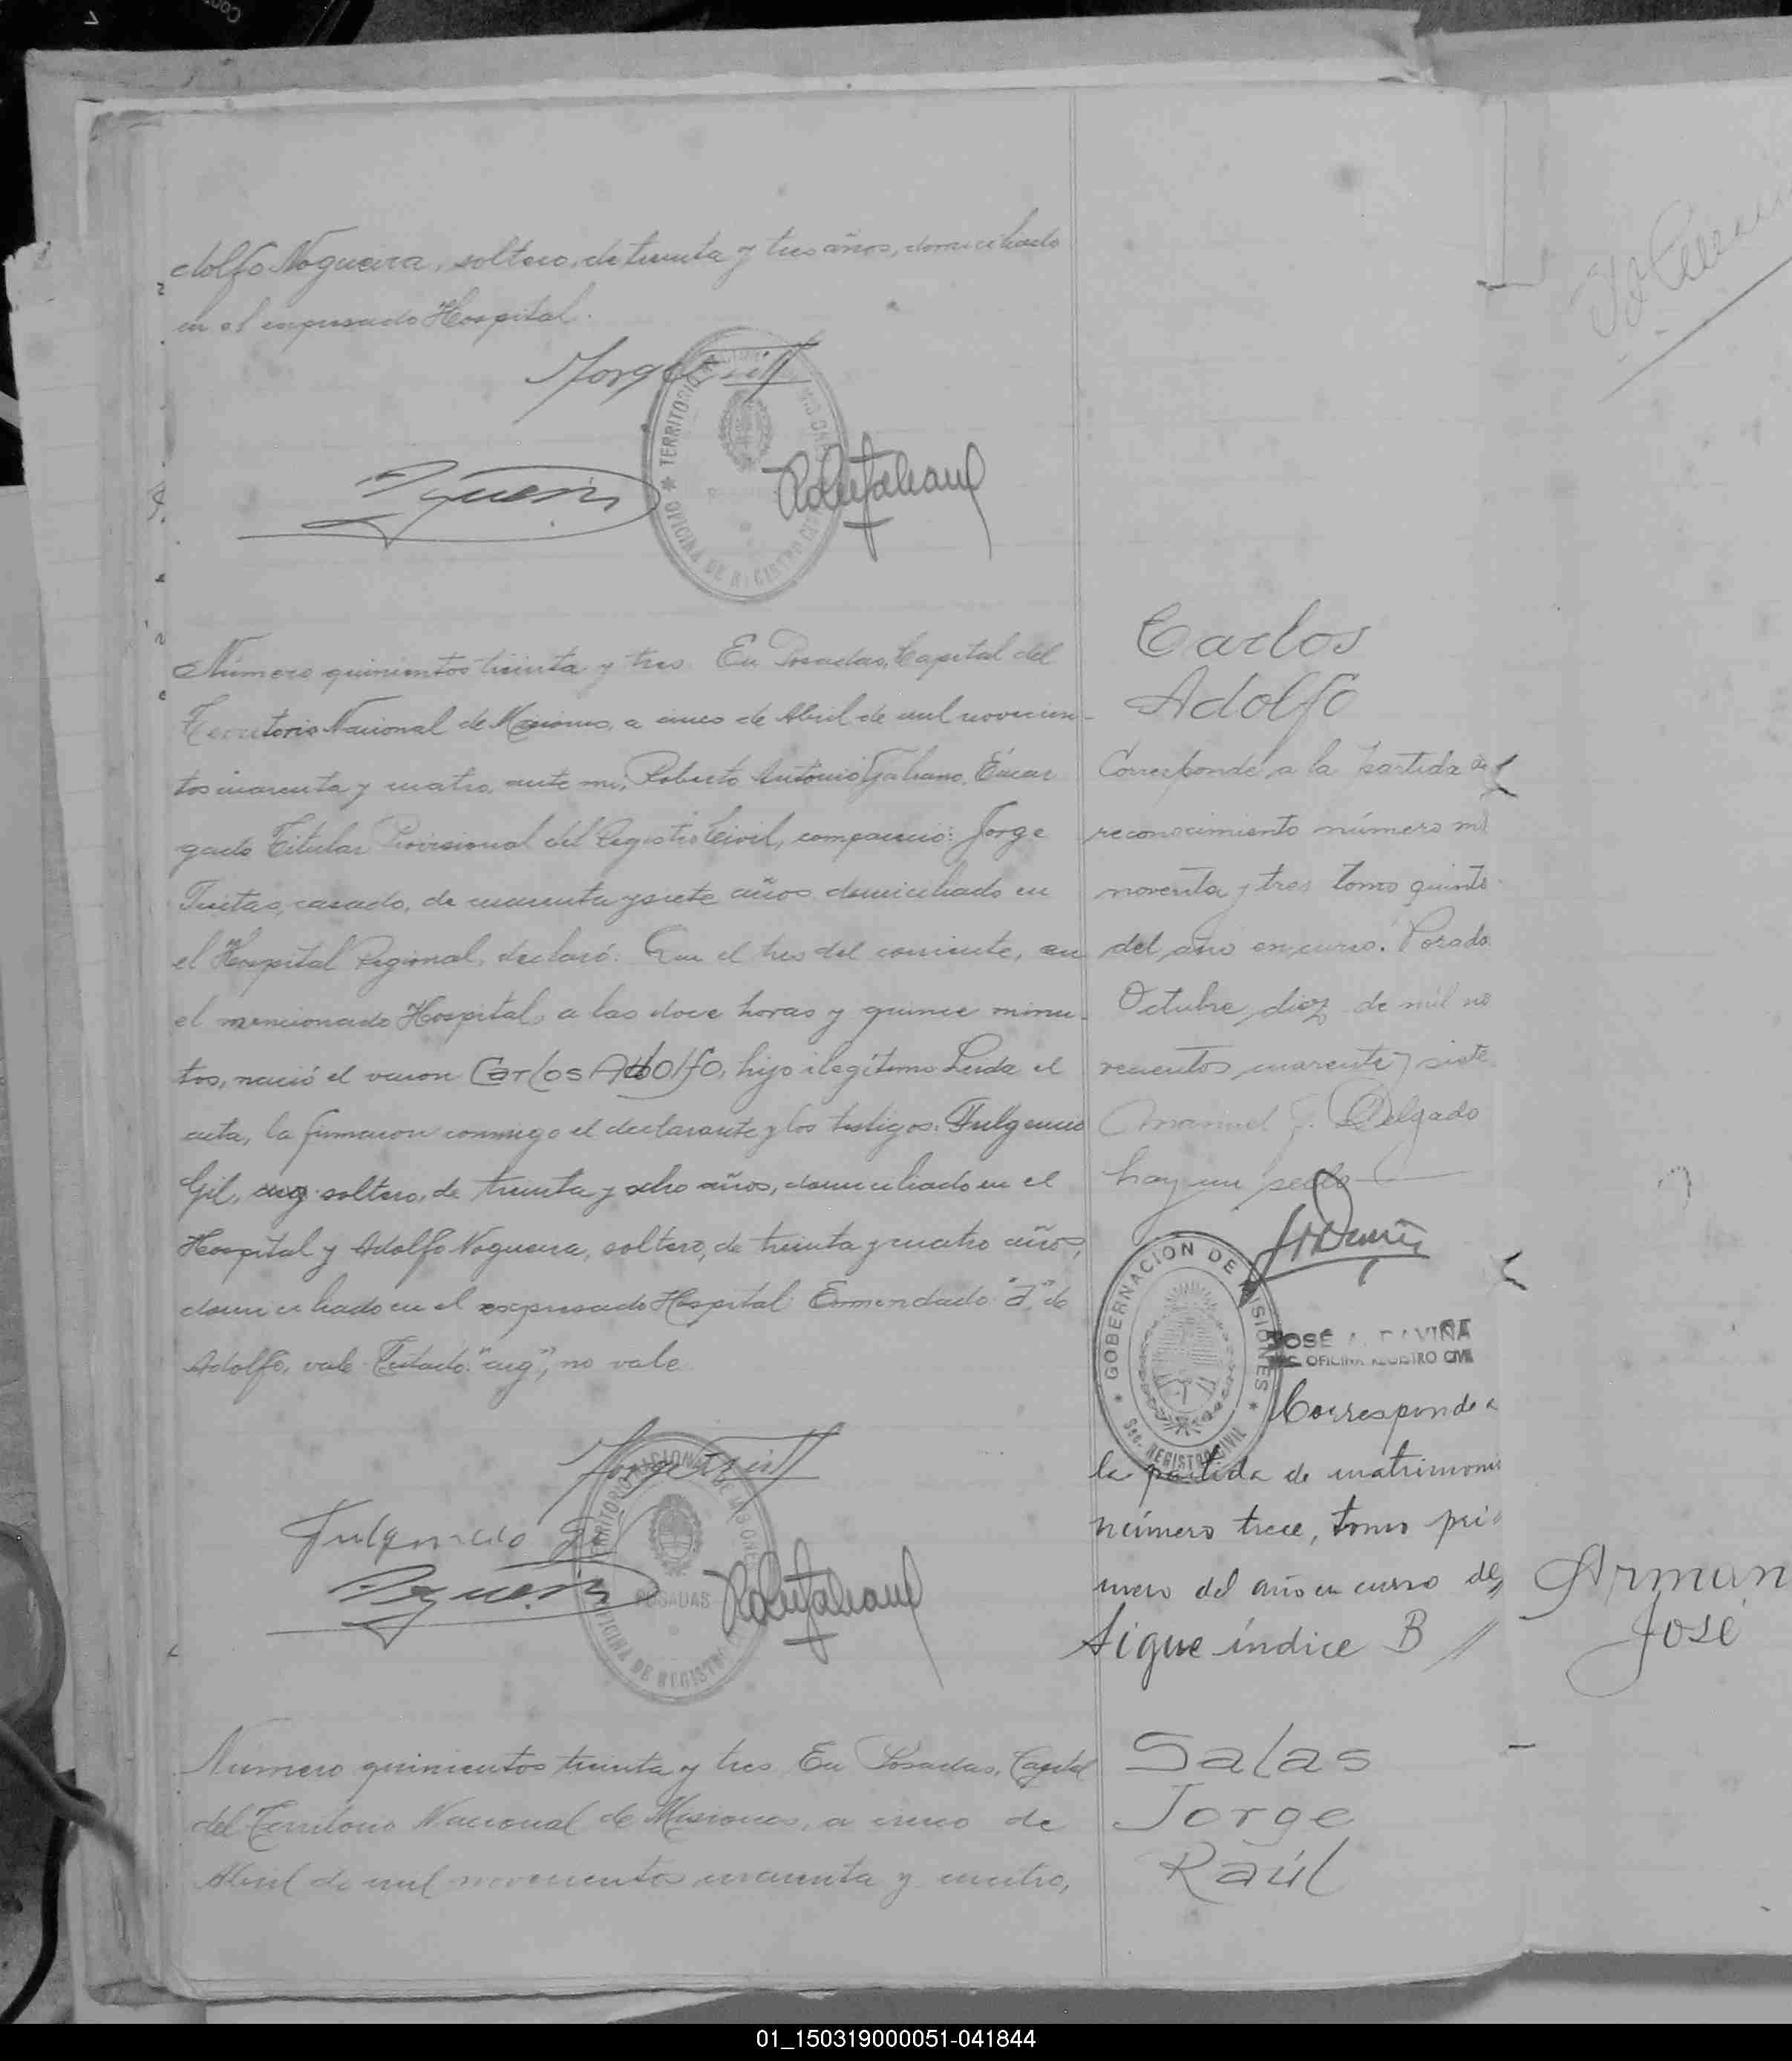 Adolfo Nogueira, soltero, de treinta y tres años, domiciliado
en el expresado Hospital.
TERRITORIO
OFICINA DE REGISTRO CIVIL
Número quinientos treinta y tres En Posadas, Capital del
Territorio Nacional de Misiones, a cinco de Abril de mil novecien-
tos cuarenta y cuatro, ante mi, Roberto Antonio Galeano, Encar
gado Titular Provisional del Registro Civil, compareció: Jorge
casado, de cuarenta y siete años, domiciliado en
el Hospital Regional, declaró: Que el tres del corriente, en
el mencionado Hospital, a las doce horas y quince minu-
tos, nació el varon Carlos Adolfo, hijo ilegítimo Leida el
acta, la firmaron conmigo el declarante y los testigos: Fulgencio
Gil, aug soltero, de treinta y ocho años, domiciliado en el
Hospital y Adolfo Nogueira, soltero, de treinta y cuatro años,
domiciliado en el expresado Hospital Enmendado "d" de
Adolfo, vale Testado: "aug", no vale
Fulgencio Gil
POSADAS
OFICINA DE REGISTRO
Número quinientos treinta y tres En Posadas, Capital
del Territorio Nacional de Misiones, a cinco de
Abril de mil novecientos cuarenta y cuatro,
Carlos
Adolfo
Corresponde a la partida de
reconocimiento número mil
noventa y tres tomo quinto
del año en curso. Posadas
Octubre diez de mil no
vecientos cuarenta y siete
Manuel J. Delgado
hay un sello
GOBERNACION DE MISIONES
Sec. REGISTRO CIVIL
JOSÉ A. DAVIÑA
OFICINA REGISTRO CIVIL
Corresponde a
la partida de matrimonio
número trece, tomo pri
mero del año en curso de
Sigue índice B //
Salas
Jorge
Raúl
Arman
José
01_150319000051-041844